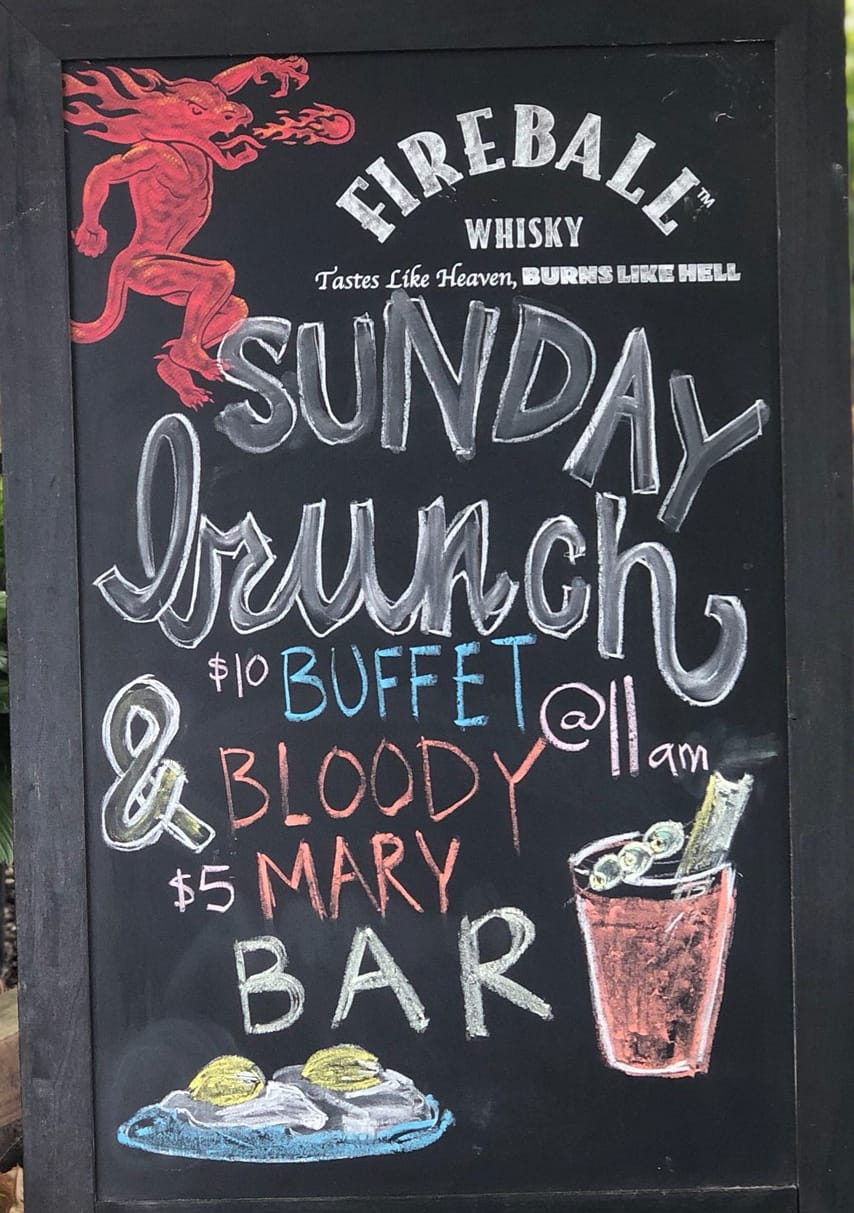 FIREBALL™
WHISKY
Tastes Like Heaven, BURNS LIKE HELL
SUNDAY
brunch
$10 BUFFET @11am
& BLOODY
$5 MARY
BAR